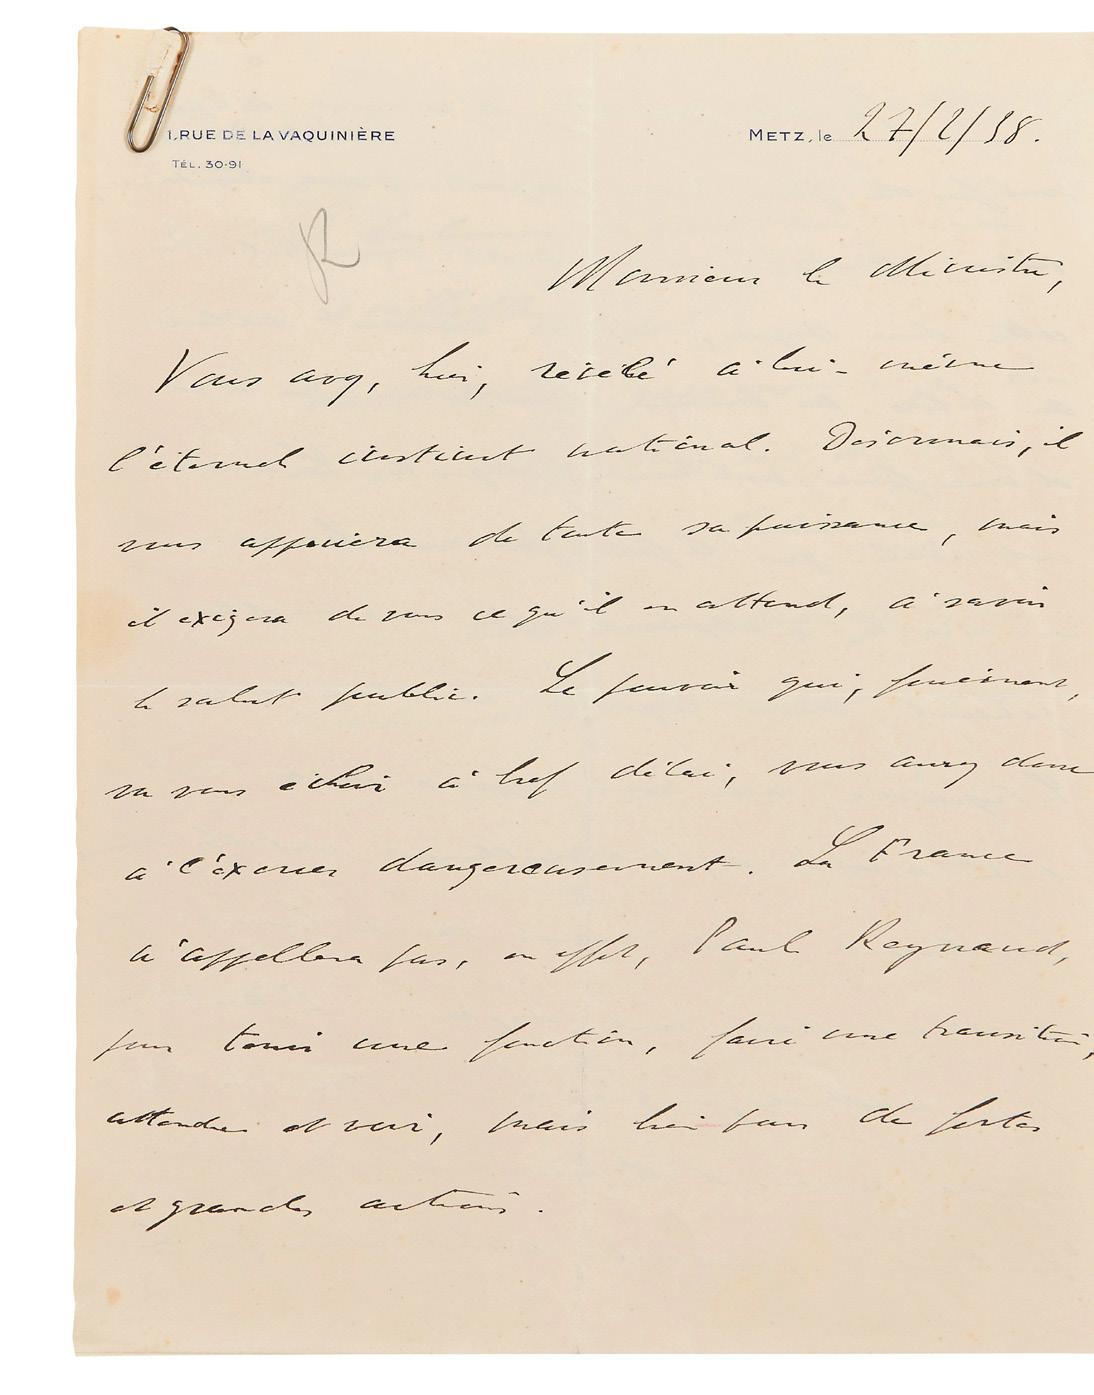 1, RUE DE LA VAQUINIÈRE
TÉL. 30-91
METZ, le 27/2/38.
Monsieur le Ministre,
Vous avez, hier, révélé à lui-même
l'éternel instinct national. Désormais, il
vous appuiera de toute sa puissance, mais
il exigera de vous ce qu'il en attend, à savoir
le salut public. Le pouvoir qui, forcément,
va vous échoir à bref délai, vous aurez donc
à l'éxercer dangereusement. La France
n'appellera pas, en effet, Paul Reynaud,
pour tenir une fonction, faire une transition,
attendre et voir, mais bien pour de fortes
et grandes actions.